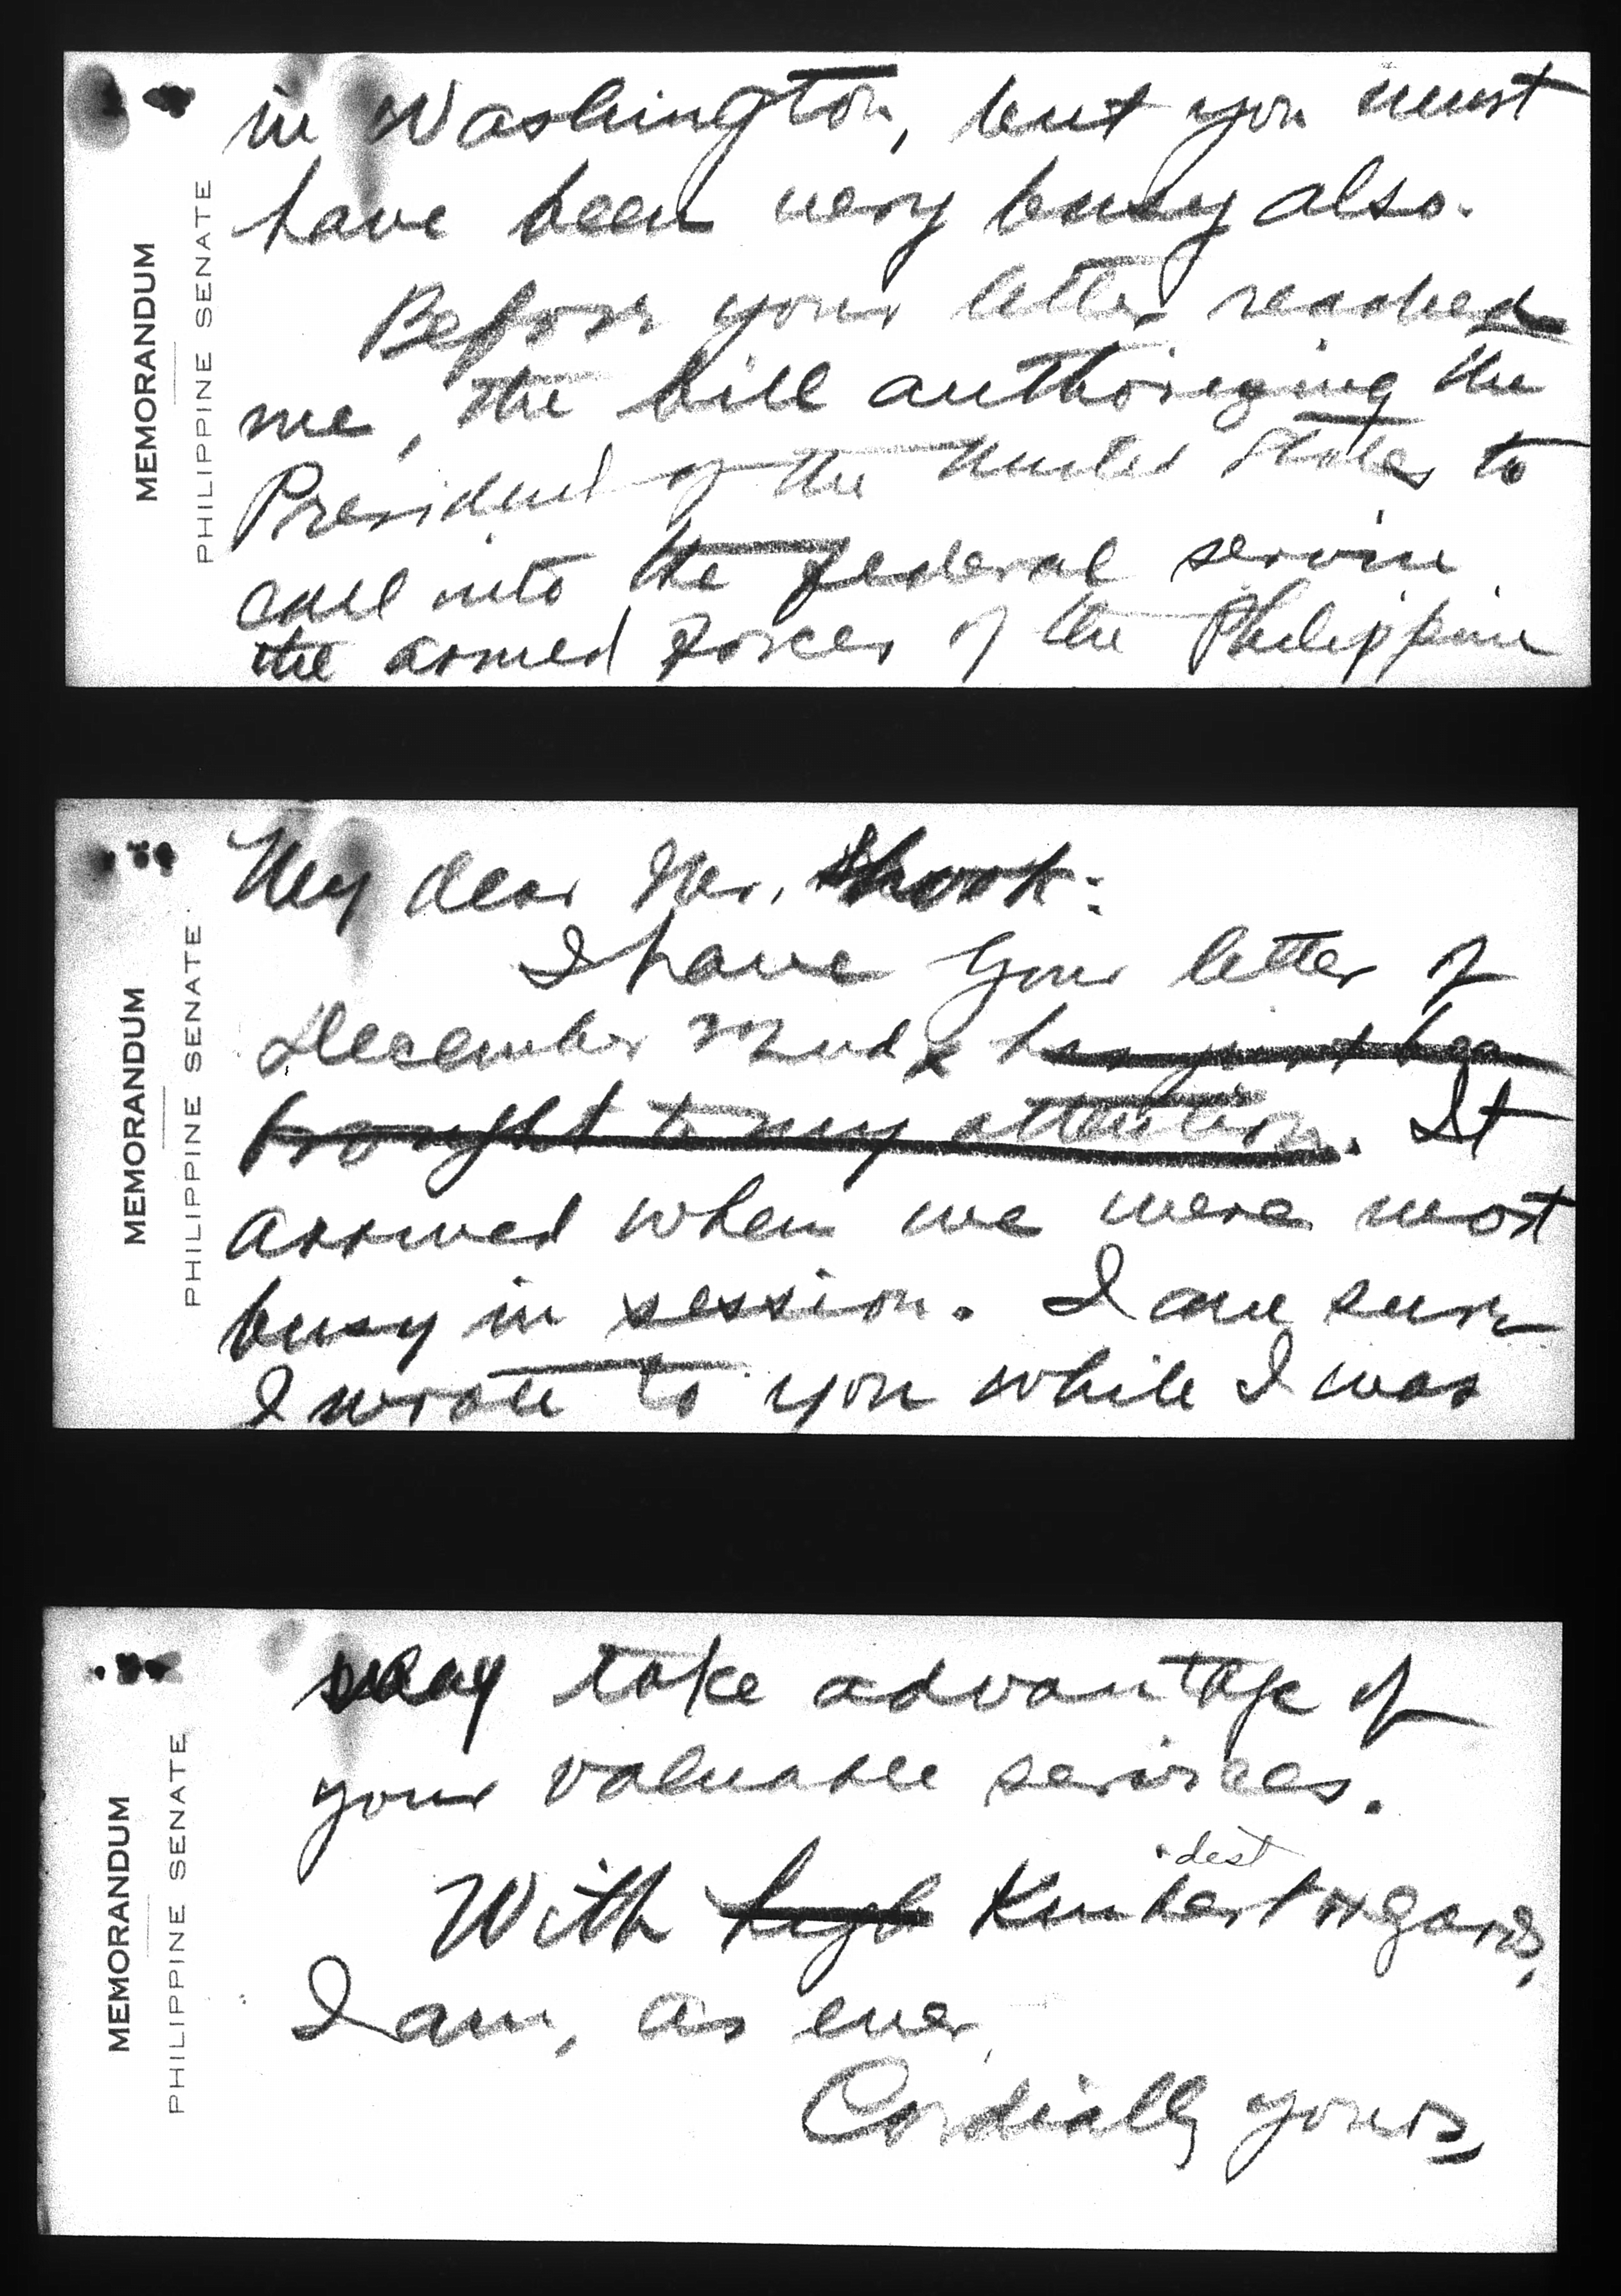 MEMORANDUM
PHILIPPINE SENATE
in Washington, but you must
have been very busy also.
Before your letter reached
me, the bill authorizing the
President of the United States to
call into the Federal service
the armed forces of the Philippine
MEMORANDUM
PHILIPPINE SENATE
My dear Mr. Shook:
I have your letter of
December 22nd has just been
brought to my attention. It
arrived when we were most
busy in session. I am sure
I wrote to you while I was
MEMORANDUM
PHILIPPINE SENATE
may take advantage of
your valuable services.
dest
With high Kindest regards,
I am, as ever,
Cordially yours,